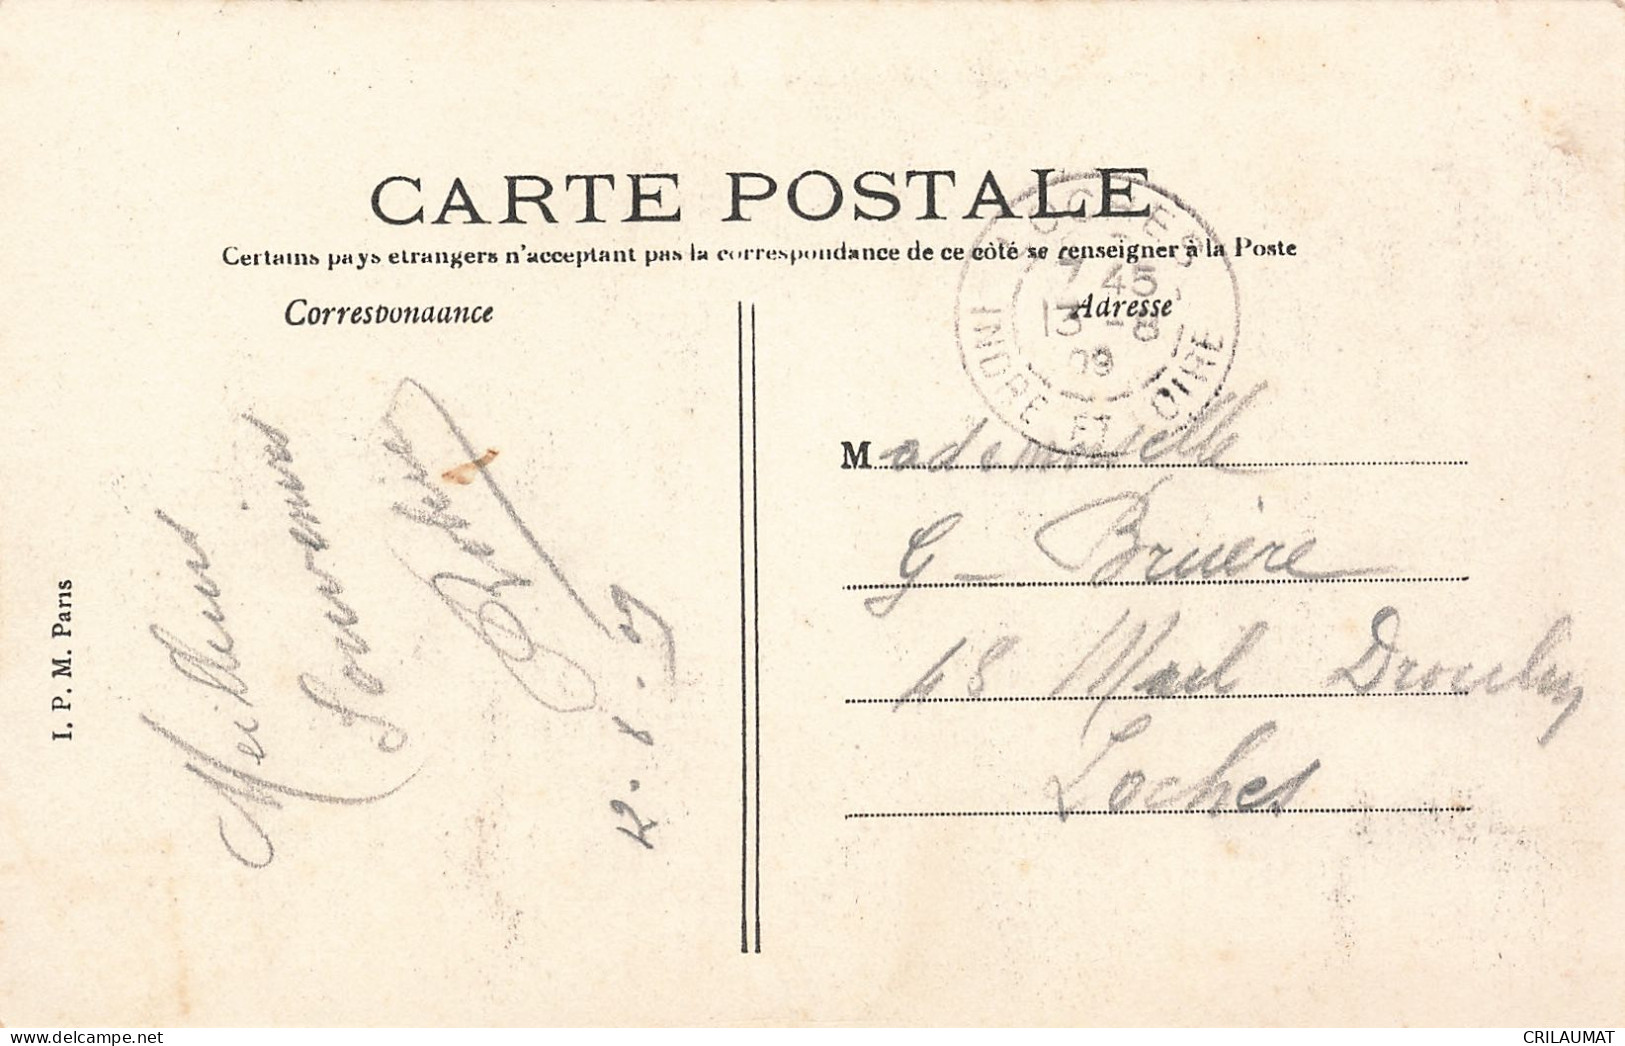 CARTE POSTALE
Certains pays etrangers n'acceptant pas la correspondance de ce côté se renseigner à la Poste
Correspondance
Adresse
LOCHES
7 45
13 -8
09
INDRE ET LOIRE
Meilleurs
Souvenirs
12.8.09
Mademoiselle
G_ Bruère
48 Mail Droulin
Loches
I. P. M. Paris
CRILAUMAT
delcampe.net